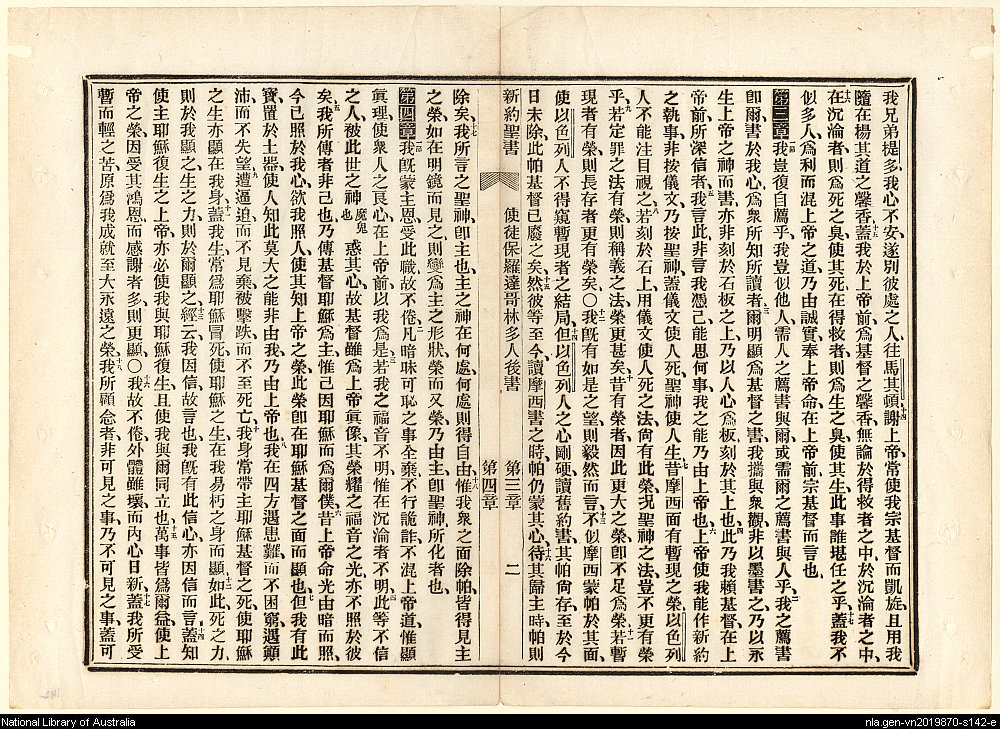 我兄弟提多、我心不安、遂別彼處之人、往馬其頓、謝上帝、常使我宗基督而凱旋、且用我
隨在揚其道之馨香、蓋我於上帝前、爲基督之馨香、無論於得救者之中、於沉淪者之中、
在沉淪者、則爲死之臭、使其死、在得救者、則爲生之臭、使其生、此事誰堪任之乎、蓋我不
似多人、爲利而混上帝之道、乃由誠實、奉上帝命、在上帝前、宗基督而言也、
第三章 我豈復自薦乎、我豈似他人、需人之薦書與爾、或需爾之薦書與人乎、我之薦書
卽爾、書於我心、爲衆所知所讀者、爾明顯爲基督之書、我攜與衆觀、非以墨書之、乃以永
生上帝之神而書、亦非刻於石板之上、乃以人心爲板、刻於其上也、此乃我賴基督在上
帝前、所深信者、我言此、非言我憑己能思何事、我之能、乃由上帝也、上帝使我能作新約
之執事、非按儀文、乃按聖神、蓋儀文使人死、聖神使人生、昔摩西面有暫現之榮、以色列
人不能注目視之、若刻於石上、用儀文使人死之法、尚有此榮、況聖神之法、豈不更有榮
乎、若定罪之法有榮、則稱義之法、榮更甚矣、昔有榮者、因此更大之榮、卽不足爲榮、若暫
現者有榮、則長存者更有榮矣、〇我旣有如是之望、則毅然而言、不似摩西蒙帕於其面、
使以色列人不得窺暫現者之結局、但以色列人之心剛硬、讀舊約書、其帕尚存、至於今
日未除、此帕基督已廢之矣、然彼等至今讀摩西書之時、帕仍蒙其心、待其歸主時、帕則
新約聖書 使徒保羅達哥林多人後書 第三章 第四章 二
除矣、我所言之聖神、卽主也、主之神在何處、何處則得自由、惟我衆之面除帕、皆得見主
之榮、如在明鏡而見之、則變爲主之形狀、榮而又榮、乃由主卽聖神所化者也、
第四章 我旣蒙主恩、受此職、故不倦、凡暗昧可恥之事、全棄不行、詭詐、不混上帝道、惟顯
眞理、使衆人之良心、在上帝前以我爲是、若我之福音不明、惟在沉淪者不明、此等不信
之人、被此世之神魔鬼也惑其心、故基督雖爲上帝眞像、其榮耀之福音之光、亦不照於彼
矣、我所傳者非己也、乃傳基督耶穌爲主、惟己因耶穌而爲爾僕、昔上帝命光由暗而照、
今已照於我心、欲我照人、使其知上帝之榮、此榮卽在耶穌基督之面而顯也、但我有此
寶、置於土器、使人知此莫大之能、非由我、乃由上帝也、我在四方遇患難、而不困窮、遇顚
沛而不失望、遭逼迫而不見棄、被擊跌而不至死亡、我身常帶主耶穌基督之死、使耶穌
之生、亦顯在我身、蓋我生常爲耶穌冒死、使耶穌之生、在我易朽之身而顯、如此、死之力、
則於我顯之、生之力、則於爾顯之、經云、我因信故言也、我旣有此信心、亦因信而言、蓋知
使主耶穌復生之上帝、亦必使我與耶穌復生、且使我與爾同立也、萬事皆爲爾益、使上
帝之榮、因受其鴻恩、而感謝者多、則更顯、〇我故不倦、外體雖壞、而內心日新、蓋我所受
暫而輕之苦、原爲我成就至大永遠之榮、我所顧念者、非可見之事、乃不可見之事、蓋可
National Library of Australia
nla.gen-vn2019870-s142-e